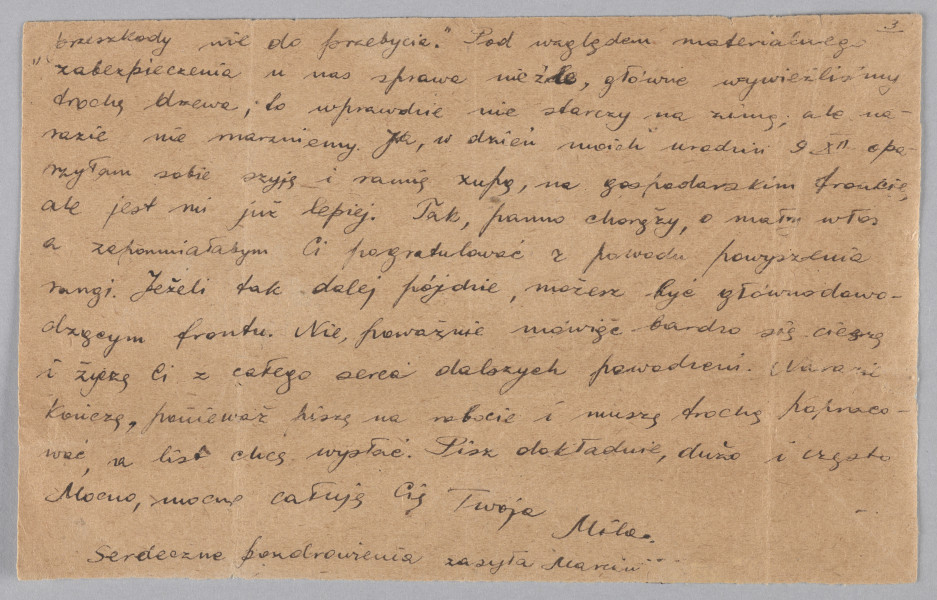 3
„przeszkody nie do przebycia." Pod względem materialnego
zabezpieczenia u nas sprawa nieźle, główne wywieźliśmy
trochę drzewa, to wprawdzie nie starczy na zimę, ale na-
razie nie marzniemy. Ja, w dzień moich urodzin 9 XII opa-
rzyłam sobie szyję i ramię zupą, na gospodarskim froncie,
ale jest mi już lepiej. Tak, panno chorąży, o mały włos
a zapomniałabym Ci pogratulować z powodu powyszenia
rangi. Jeżeli tak dalej pójdzie, możesz być głównodowo-
dzącym frontu. Nie, poważnie mówiąc bardzo się cieszę
i życzę Ci z całego serca dalszych powodzeni. Narazie
kończę, ponieważ piszę na robocie i muszę trochę popraco-
wać, a list chcę wysłać. Pisz dokładnie, dużo i często
Mocno, mocno całuję Cię Twoja
Mila.
Serdeczne pozdrowienia zasyła Marcin